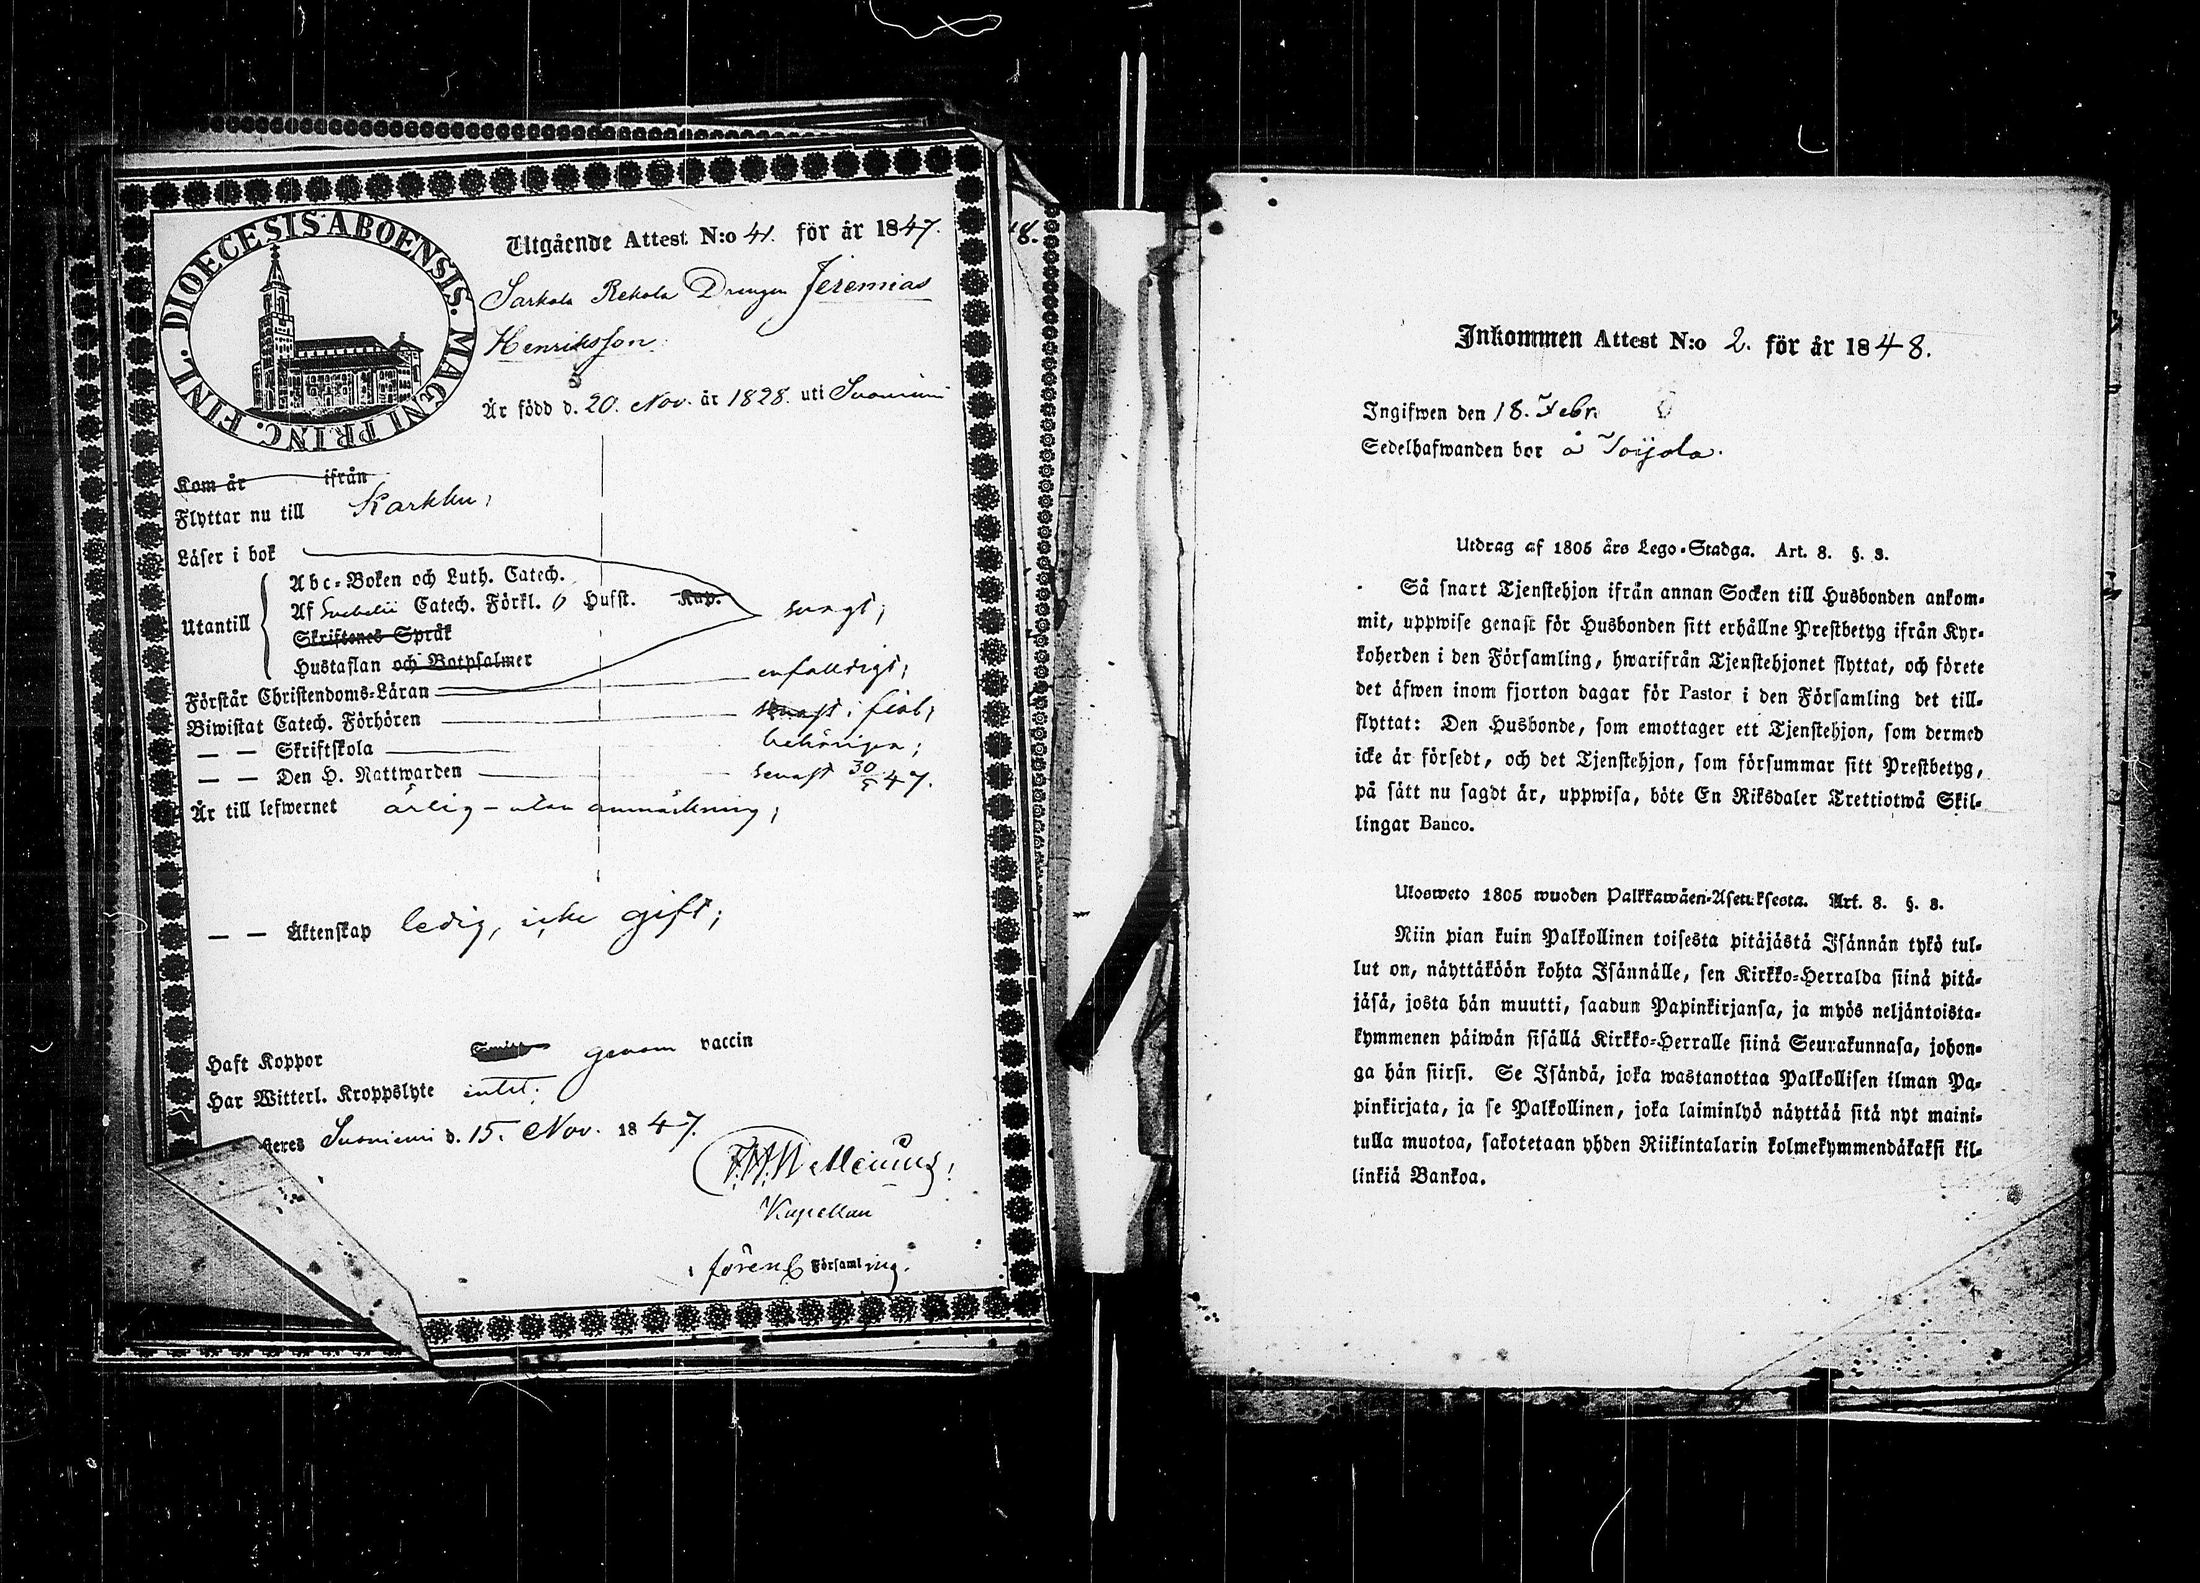 DIOECESIS ABOENSIS. MAGNI PRINC. FINL.
Utgående Attest N:o 41. för år 1847.
Sarkola Rekola Drengen Jeremias
Henriksson.
Är född d. 20. Nov. år 1828. uti Suoniemi
Kom år ifrån
Flyttar nu till Karkku;
Läser i bok
Utantill
Abc-Boken och Luth. Catech.
Af Svebelii Catech. Förkl. Husst. Kap. svagt;
Skriftenes Språk
Hustaflan och Botpsalmer
Förstår Christendoms-Läran enfaldigt;
Biwistat Catech. Förhören senast i fjol;
— — Skriftskola behörigen;
— — Den H. Nattwarden senast 30/5 47.
Är till lefwernet ärlig – utan anmärkning;
— — Äktenskap ledig, icke gift;
Haft Koppor genom vaccin
Har Witterl. Kroppslyte intet;
steres Suoniemi d. 15. Nov. 1847.
Kapellan
fören Församling.
48.
Inkommen Attest N:o 2. för år 1848.
Ingifwen den 18. Febr.
Sedelhafwanden bor å Toijola.
Utdrag af 1805 års Lego-Stadga. Art. 8. §. 3.
Så snart Tjenstehjon ifrån annan Socken till Husbonden ankom-
mit, uppwise genast för Husbonden sitt erhållne Prestbetyg ifrån Kyr-
koherden i den Församling, hwarifrån Tjenstehjonet flyttat, och förete
det äfwen inom fjorton dagar för Pastor i den Församling det till-
flyttat: Den Husbonde, som emottager ett Tjenstehjon, som dermed
icke är försedt, och det Tjenstehjon, som försummar sitt Prestbetyg,
på sätt nu sagdt är, uppwisa, böte En Riksdaler Trettiotwå Skil-
lingar Banco.
Ulosweto 1805 wuoden Palkkawäen-Asetuksesta. Art. 8. §. 3.
Niin pian kuin Palkollinen toisesta pitäjästä Isännän tykö tul-
lut on, näyttäköön kohta Isännälle, sen Kirkko-Herralda siinä pitä-
jäsä, josta hän muutti, saadun Papinkirjansa, ja myös neljäntoista-
kymmenen päiwän sisällä Kirkko-Herralle siinä Seurakunnasa, johon-
ga hän siirsi. Se Isändä, joka wastanottaa Palkollisen ilman Pa-
pinkirjata, ja se Palkollinen, joka laiminlyö näyttää sitä nyt maini-
tulla muotoa, sakotetaan yhden Riikintalarin kolmekymmendäkaksi kil-
linkiä Bankoa.